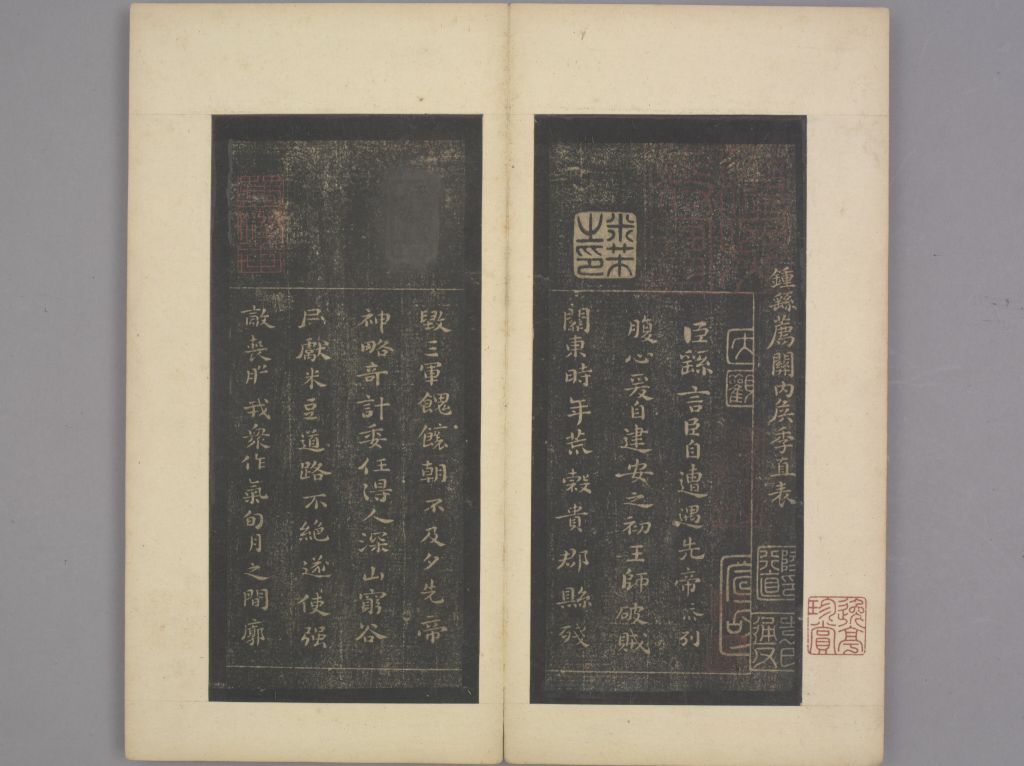 鍾繇薦關內侯季直表
臣繇言臣自遭遇先帝忝列
腹心爰自建安之初王師破賊
關東時年荒穀貴郡縣殘
毀三軍餽饟朝不及夕先帝
神略奇計委任得人深山窮谷
民獻米豆道路不絕遂使强
敵喪膽我衆作氣旬月之間廓
米芾之印
大觀
逸亭珍賞